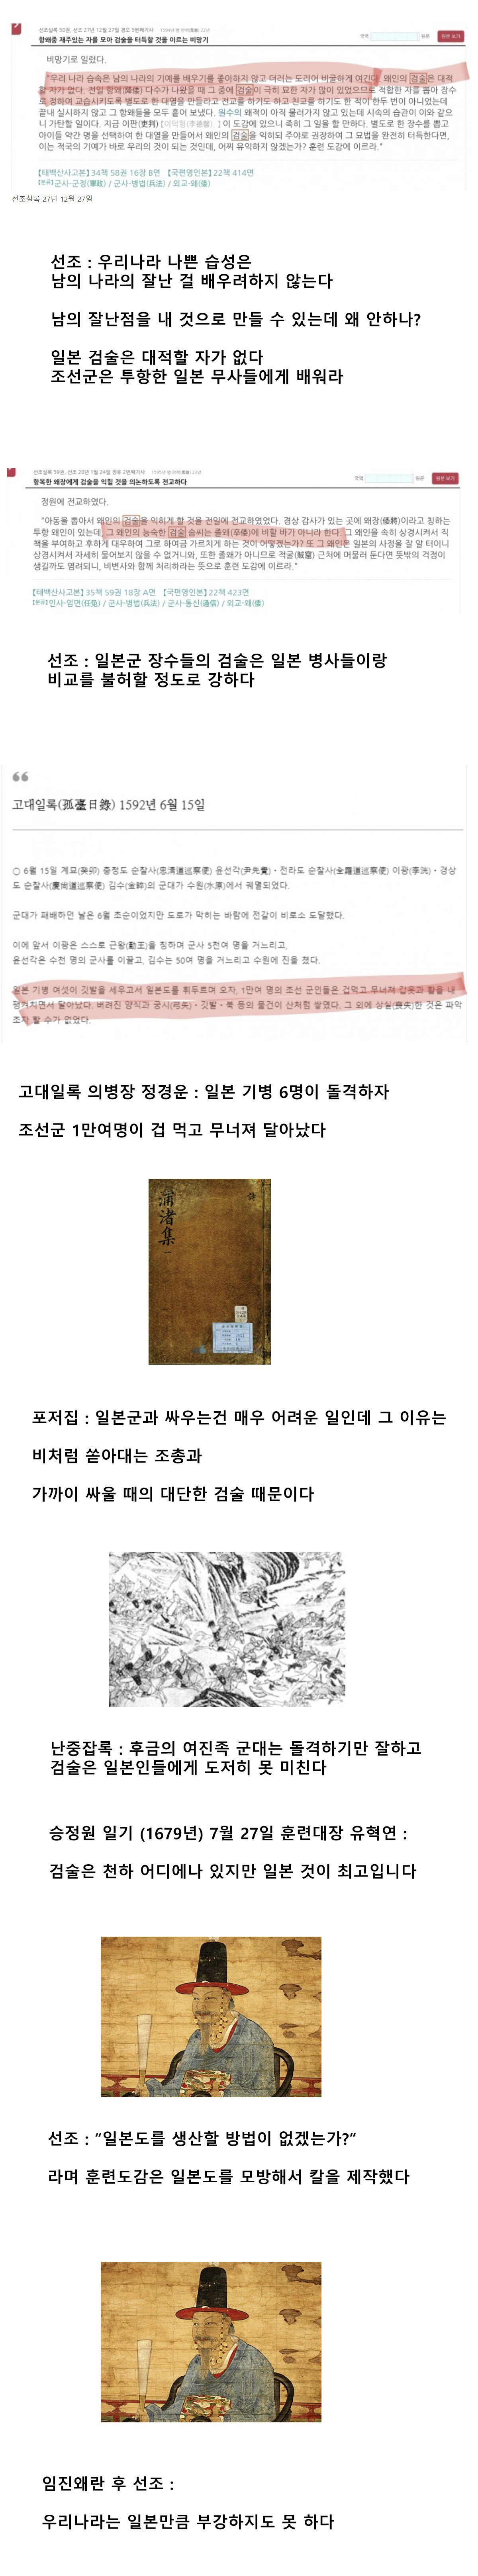 선조실록 58권, 선조 27년 12월 27일 경오 5번째기사
국역
원문
원문 보기
항왜중 재주있는 자를 모아 검술을 터득할 것을 이르는 비망기
비망기로 일렀다.
"우리 나라 습속은 남의 나라의 기예를 배우기를 좋아하지 않고 더러는 도리어 비굴하게 여긴다. 왜인의 검술은 대적
할 자가 없다. 전일 항왜(降倭) 다수가 나왔을 때 그 중에 검술이 극히 묘한 자가 많이 있었으므로 적합한 자를 뽑아 장수
로 정하여 교습시키도록 별도로 한 대열을 만들라고 전교를 하기도 하고 친교를 하기도 한 적이 한두 번이 아니었는데
끝내 실시하지 않고 그 항왜들을 모두 흩어 보냈다. 원수의 왜적이 아직 물러가지 않고 있는데 시속의 습관이 이와 같으
니 가탄할 일이다. 지금 이판(吏判) 이 도감에 있으니 족히 그 일을 할 만하다. 별도로 한 장수를 뽑고
아이들 약간 명을 선택하여 한 대열을 만들어서 왜인의 검술을 익히되 주야로 권장하여 그 묘법을 완전히 터득한다면,
이는 적국의 기예가 바로 우리의 것이 되는 것인데, 어찌 유익하지 않겠는가? 훈련 도감에 이르라."
【태백산사고본】 34책 58권 16장 B면 【국편영인본】 22책 414면
【분류】 군사-군정(軍政) / 군사-병법(兵法) / 외교-왜(倭)
선조실록 27년 12월 27일
선조 : 우리나라 나쁜 습성은
남의 나라의 잘난 걸 배우려하지 않는다
남의 잘난점을 내 것으로 만들 수 있는데 왜 안하나?
일본 검술은 대적할 자가 없다
조선군은 투항한 일본 무사들에게 배워라
선조실록 59권, 선조 28년 1월 24일 정유 2번째기사
국역
원문
원문 보기
항복한 왜장에게 검술을 익힐 것을 의논하도록 전교하다
정원에 전교하였다.
"아동을 뽑아서 왜인의 검술을 익히게 할 것을 전일에 전교하였었다. 경상 감사가 있는 곳에 왜장(倭將)이라고 칭하는
투항 왜인이 있는데, 그 왜인의 능숙한 검술 솜씨는 졸왜(卒倭)에 비할 바가 아니라 한다. 그 왜인을 속히 상경시켜서 직
책을 부여하고 후하게 대우하여 그로 하여금 가르치게 하는 것이 어떻겠는가? 또 그 왜인은 일본의 사정을 잘 알 터이니
상경시켜서 자세히 물어보지 않을 수 없거니와, 또한 졸왜가 아니므로 적굴(賊窟) 근처에 머물러 둔다면 뜻밖의 걱정이
생길까도 염려되니, 비변사와 함께 처리하라는 뜻으로 훈련 도감에 이르라."
【태백산사고본】 35책 59권 18장 A면 【국편영인본】 22책 423면
【분류】 인사-임면(任免) / 군사-병법(兵法) / 군사-통신(通信) / 외교-왜(倭)
선조 : 일본군 장수들의 검술은 일본 병사들이랑
비교를 불허할 정도로 강하다
고대일록(孤臺日錄) 1592년 6월 15일
○ 6월 15일 계묘(癸卯) 충청도 순찰사(忠淸道巡察使) 윤선각(尹先覺)・전라도 순찰사(全羅道巡察使) 이광(李洸)・경상
도 순찰사(慶尙道巡察使) 김수(金睟)의 군대가 수원(水原)에서 궤멸되었다.
군대가 패배하던 날은 6월 초순이었지만 도로가 막히는 바람에 전갈이 비로소 도달했다.
이에 앞서 이광은 스스로 근왕(勤王)을 칭하며 군사 5천여 명을 거느리고,
윤선각은 수천 명의 군사를 이끌고, 김수는 50여 명을 거느리고 수원에 진을 쳤다.
일본 기병 여섯이 깃발을 세우고서 일본도를 휘두르며 오자, 1만여 명의 조선 군인들은 겁먹고 무너져 갑옷과 활을 내
팽겨치면서 달아났다. 버려진 양식과 궁시(弓矢)・깃발・북 등의 물건이 산처럼 쌓였다. 그 외에 상실(喪失)한 것은 파악
조차 할 수가 없었다.
고대일록 의병장 정경운 : 일본 기병 6명이 돌격하자
조선군 1만여명이 겁 먹고 무너져 달아났다
浦渚集
포저집 : 일본군과 싸우는건 매우 어려운 일인데 그 이유는
비처럼 쏟아대는 조총과
가까이 싸울 때의 대단한 검술 때문이다
난중잡록 : 후금의 여진족 군대는 돌격하기만 잘하고
검술은 일본인들에게 도저히 못 미친다
승정원 일기 (1679년) 7월 27일 훈련대장 유혁연 :
검술은 천하 어디에나 있지만 일본 것이 최고입니다
선조 : “일본도를 생산할 방법이 없겠는가?”
라며 훈련도감은 일본도를 모방해서 칼을 제작했다
임진왜란 후 선조 :
우리나라는 일본만큼 부강하지도 못 하다